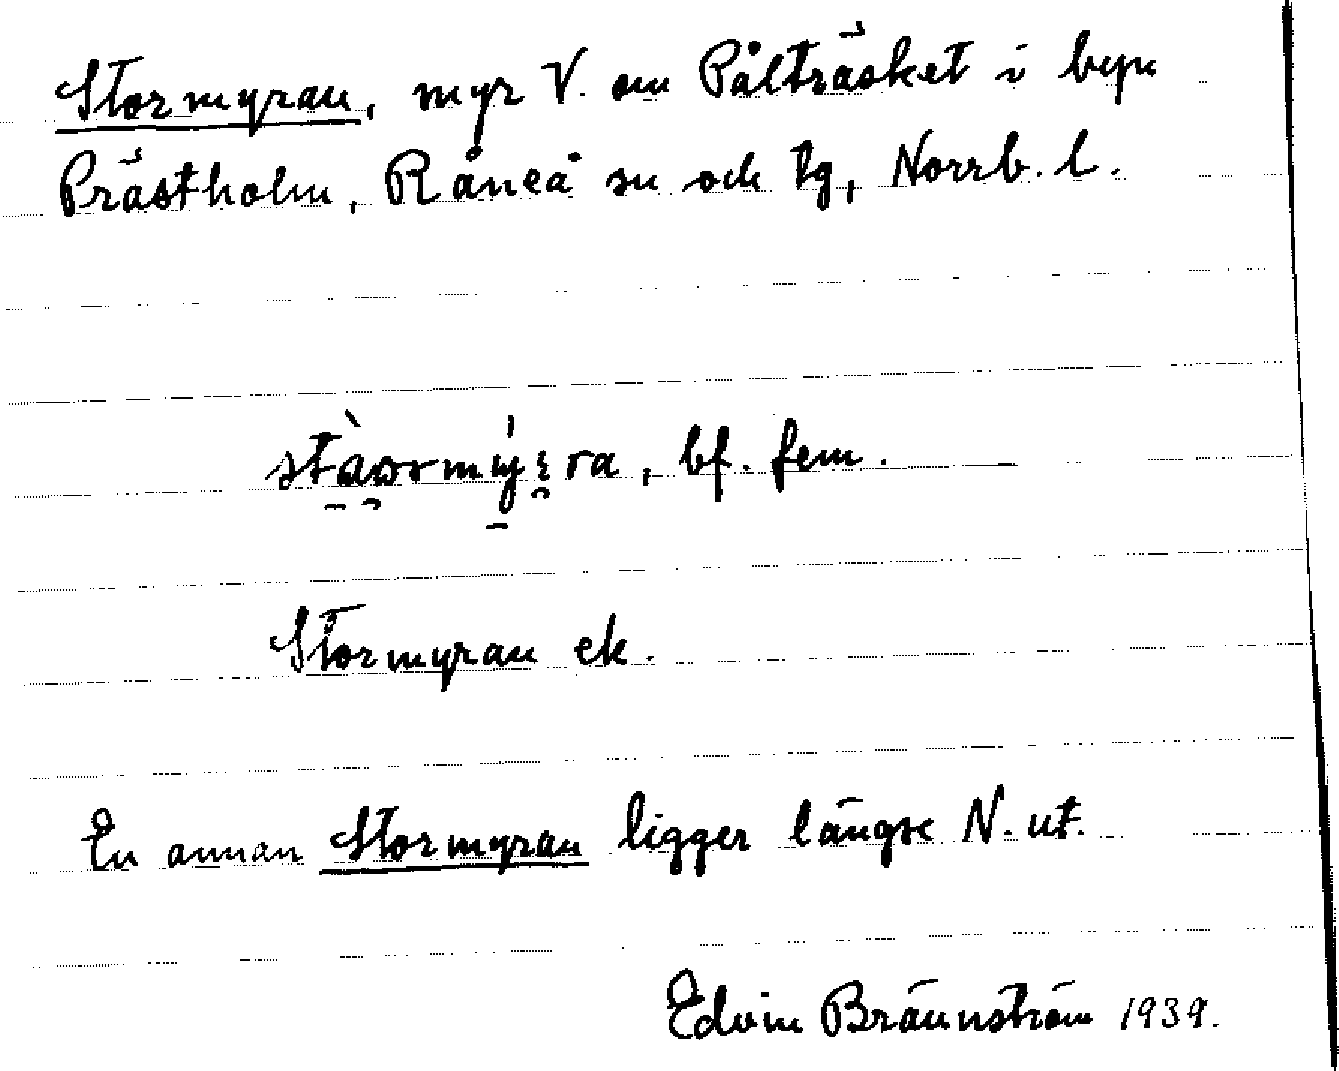 Stormyran, myr V. om Pålträsket i byn
Prästholm, Råneå sn och tg, Norrb. l.
bf. fem.
Stormyran ek.
En annan Stormyran ligger längre N. ut.
Edvin Brännström 1939.